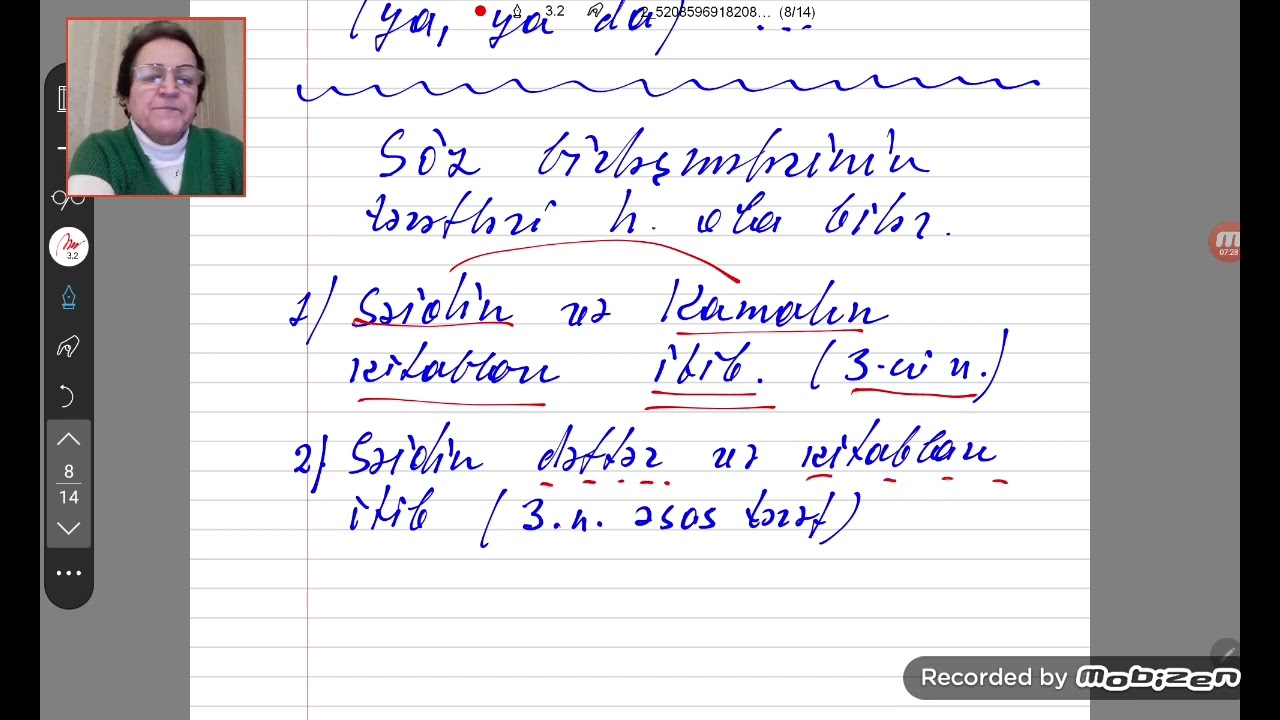 (ya, ya da) ...
3.2
5208596918208... (8/14)
Söz birləşmələrinin
tərəfləri h. ola bilər.
1) Səidin və Kamalın
kitabları itib. (3-cü n.)
2) Səidin dəftər və kitabları
itib (3. n. əsas tərəf)
3.2
8
14
07:28
Recorded by mobizen